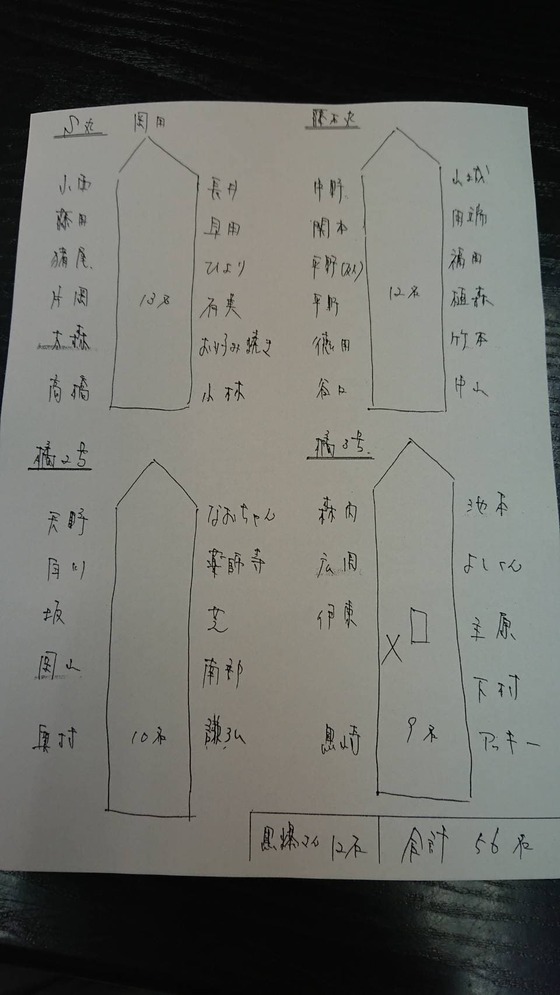 S丸 岡田
小西 長井
森田 早田
猪尾 ひより
片岡 石美
大森 おりろみ焼き
高橋 小林
13名
藤本丸
中野 山城
関本 田端
平野(ひ) 福田
平野 植森
徳田 竹本
谷口 中山
12名
橘2号
天野 なおちゃん
薬師寺
坂 芝
岡山 南部
奥村 謙弘
10名
橘3号
森内 池本
広田 よしくん
伊東 主原
下村
黒崎 アッキー
X
9名
12名 合計 56名